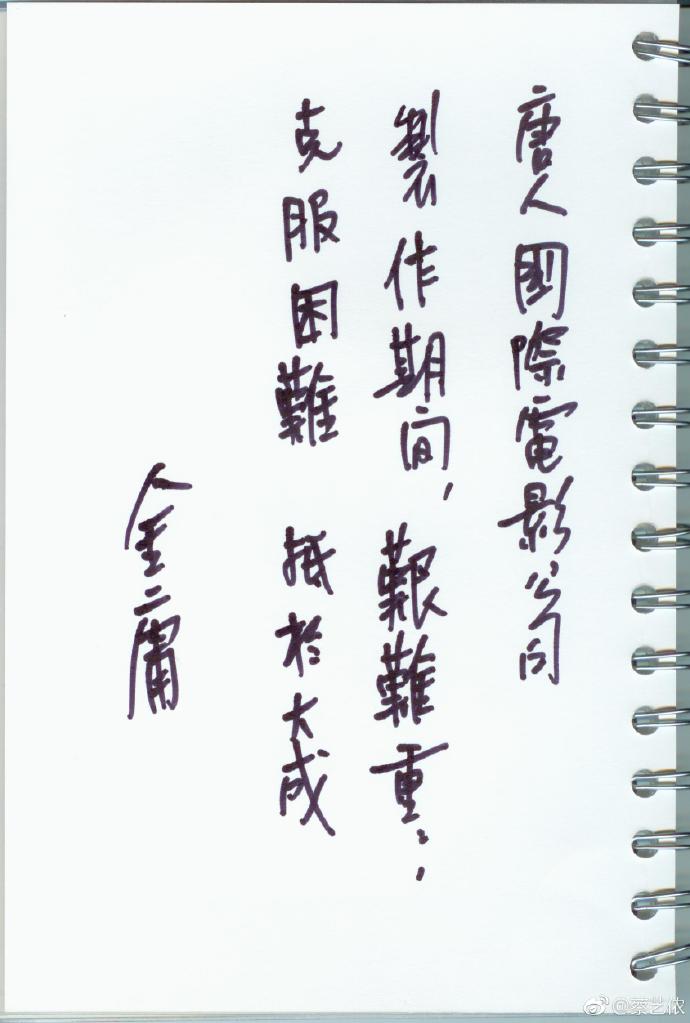 唐人國際電影公司
製作期间，艱難重：，
克服困難 抵於大成
金庸
@蔡艺侬